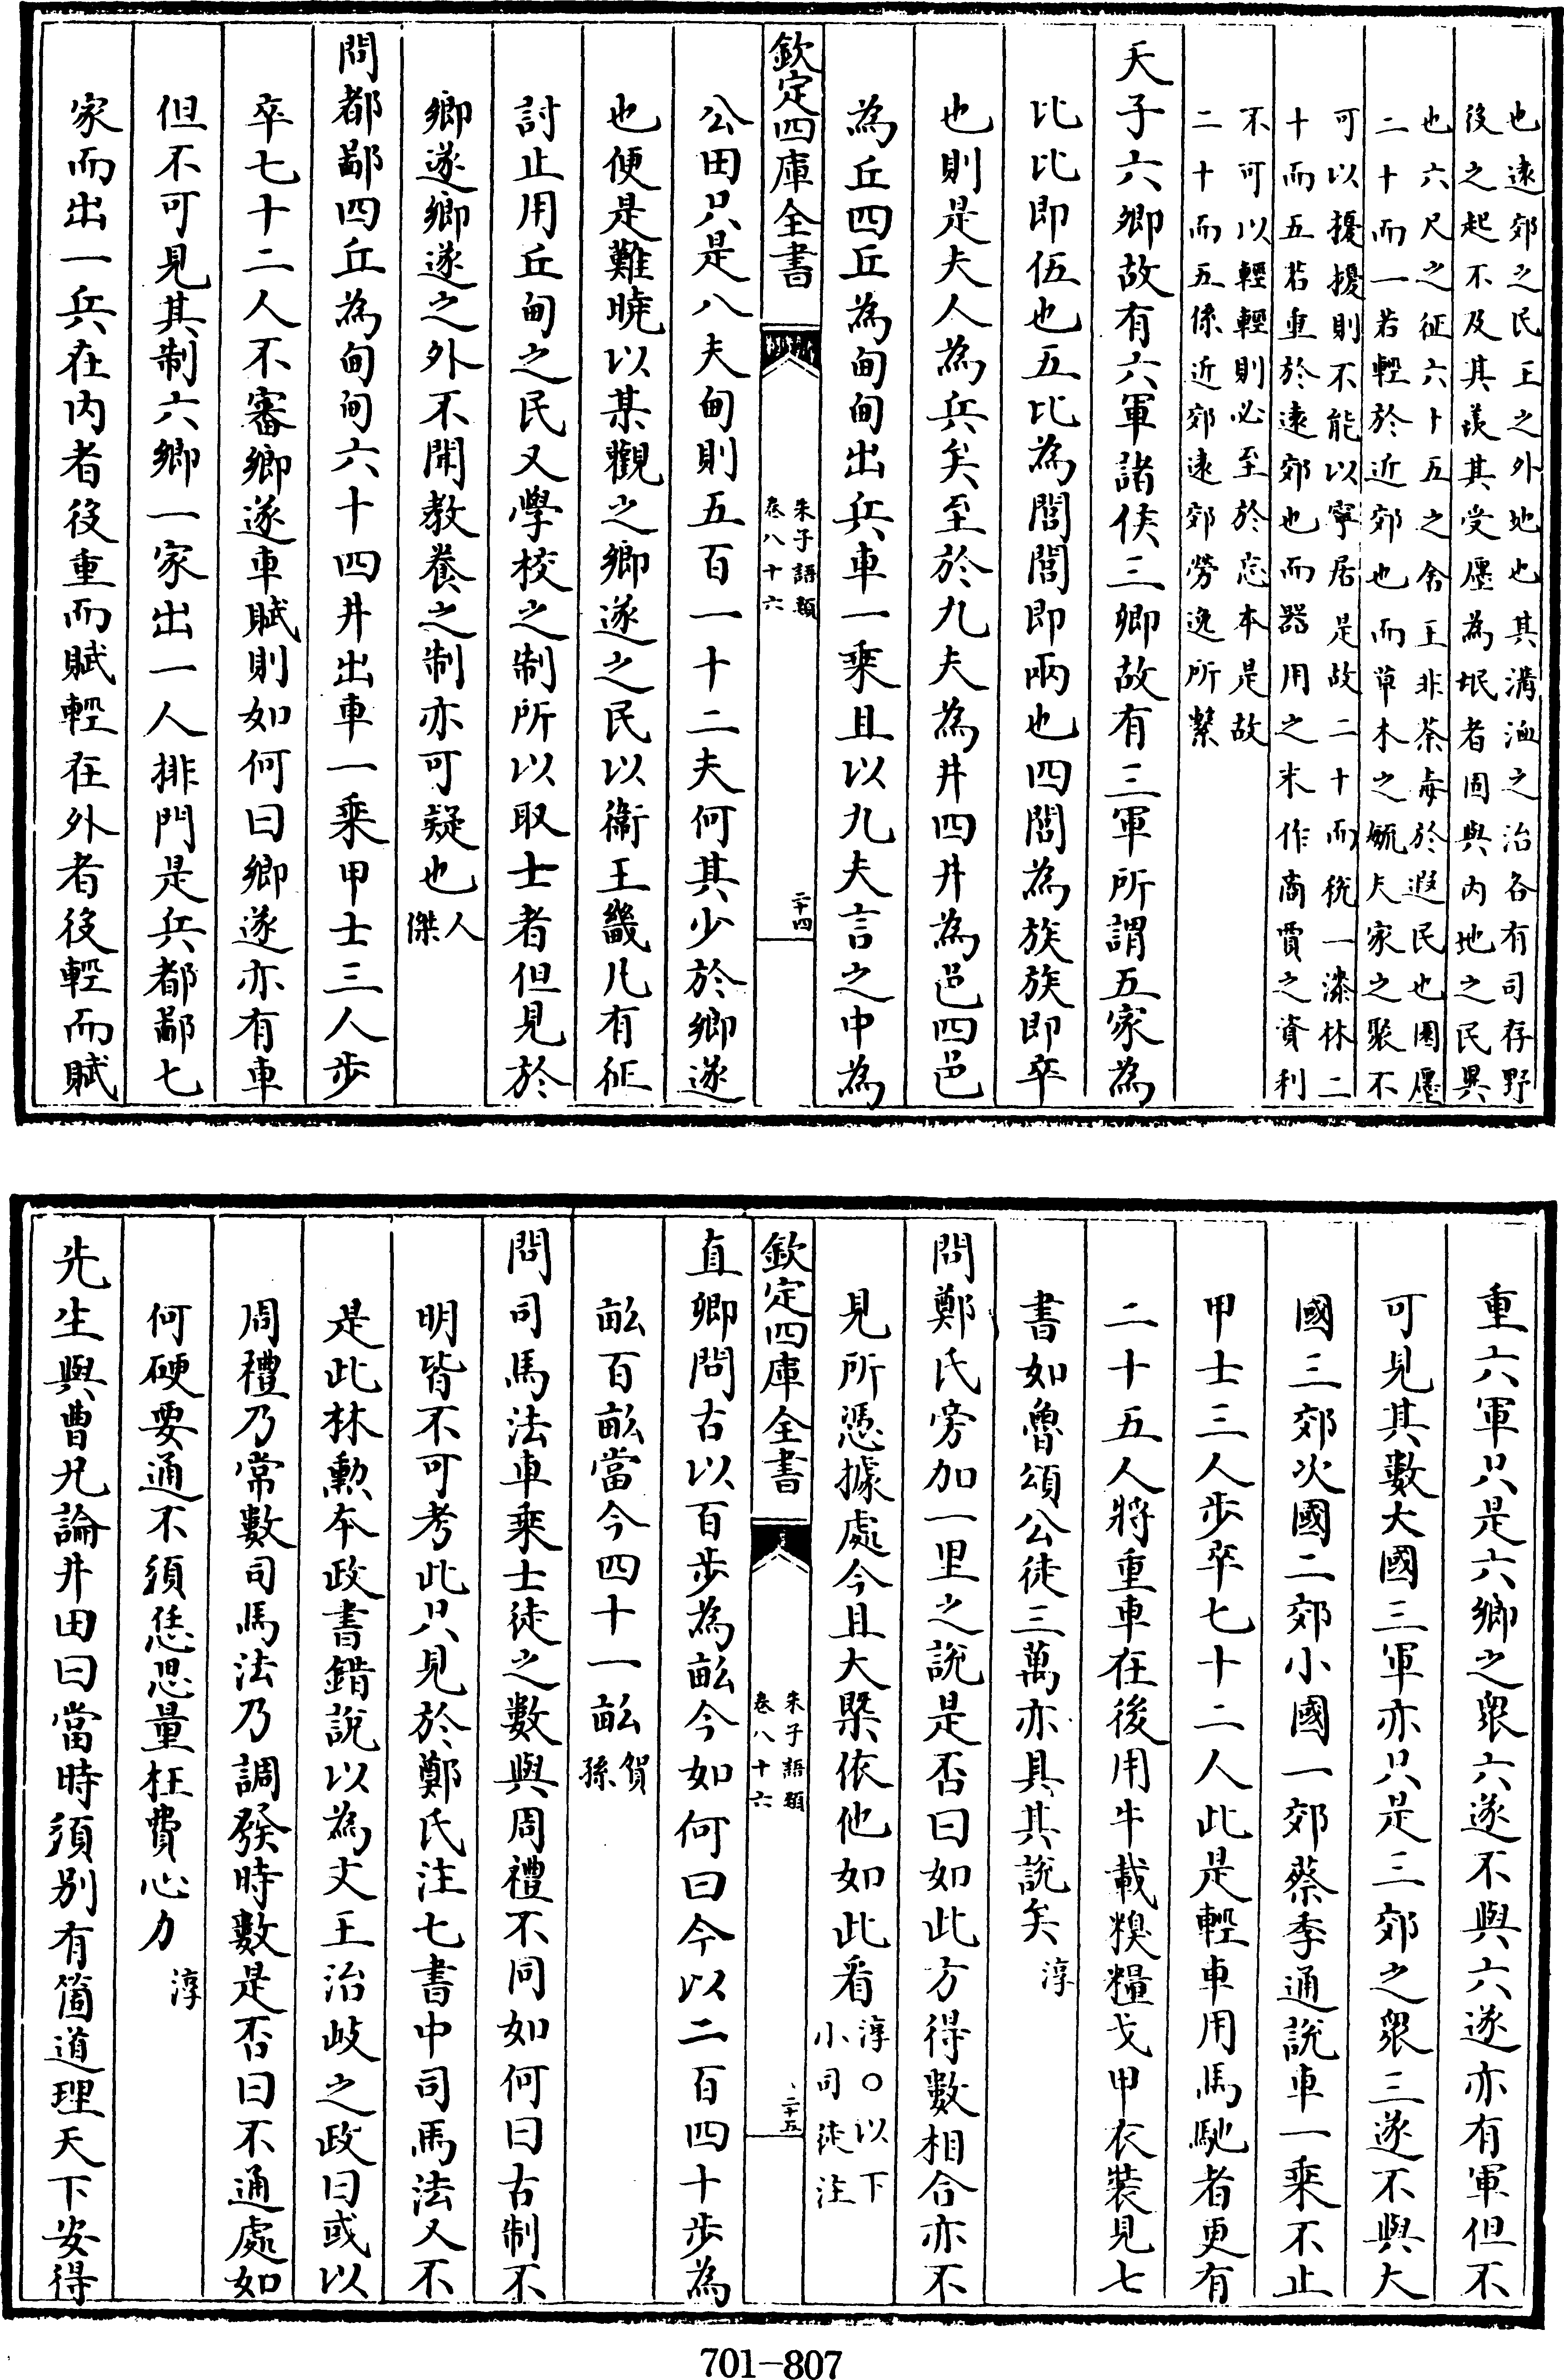 也遠郊之民王之外地也其溝洫之治各有司存野
役之起不及其羨其受廛為氓者固與内地之民異
也六尺之征六十五之舍王非荼毒於遐民也園廛
二十而一若輕於近郊也而草木之毓夫家之聚不
可以擾擾則不能以寧居是故二十而稅一漆林二
十而五若重於遠郊也而器用之末作商賈之資利
不可以輕輕則必至於忘本是故
二十而五係近郊遠郊勞逸所繫
天子六卿故有六軍諸侯三卿故有三軍所謂五家為
比比即伍也五比為閭閭即兩也四閭為族族即卒
也則是夫人為兵矣至於九夫為井四井為邑四邑
為丘四丘為甸甸出兵車一乘且以九夫言之中為
欽定四庫全書
朱子語類
卷八十六
二十四
公田只是八夫甸則五百一十二夫何其少於鄉遂
也便是難曉以某觀之鄉遂之民以衞王畿凡有征
討止用丘甸之民又學校之制所以取士者但見於
鄉遂鄉遂之外不聞教養之制亦可疑也人
傑
問都鄙四丘為甸甸六十四井出車一乘甲士三人步
卒七十二人不審鄉遂車賦則如何曰鄉遂亦有車
但不可見其制六鄉一家出一人排門是兵都鄙七
家而出一兵在内者役重而賦輕在外者役輕而賦
重六軍只是六鄉之衆六遂不與六遂亦有軍但不
可見其數大國三軍亦只是三郊之衆三遂不與大
國三郊次國二郊小國一郊蔡季通說車一乘不止
甲士三人步卒七十二人此是輕車用馬馳者更有
二十五人將重車在後用牛載糗糧戈甲衣裝見七
書如魯頌公徒三萬亦具其說矣淳
問鄭氏旁加一里之說是否曰如此方得數相合亦不
見所憑據處今且大槩依他如此看淳○以下
小司徒注
欽定四庫全書
朱子語類
卷八十六
二十五
直卿問古以百步為畝今如何曰今以二百四十步為
畝百畝當今四十一畝賀
孫
問司馬法車乘士徒之數與周禮不同如何曰古制不
明皆不可考此只見於鄭氏注七書中司馬法又不
是此林勲本政書錯說以為文王治岐之政曰或以
周禮乃常數司馬法乃調發時數是否曰不通處如
何硬要通不須恁思量枉費心力淳
先生與曹兄論井田曰當時須别有箇道理天下安得
701-807